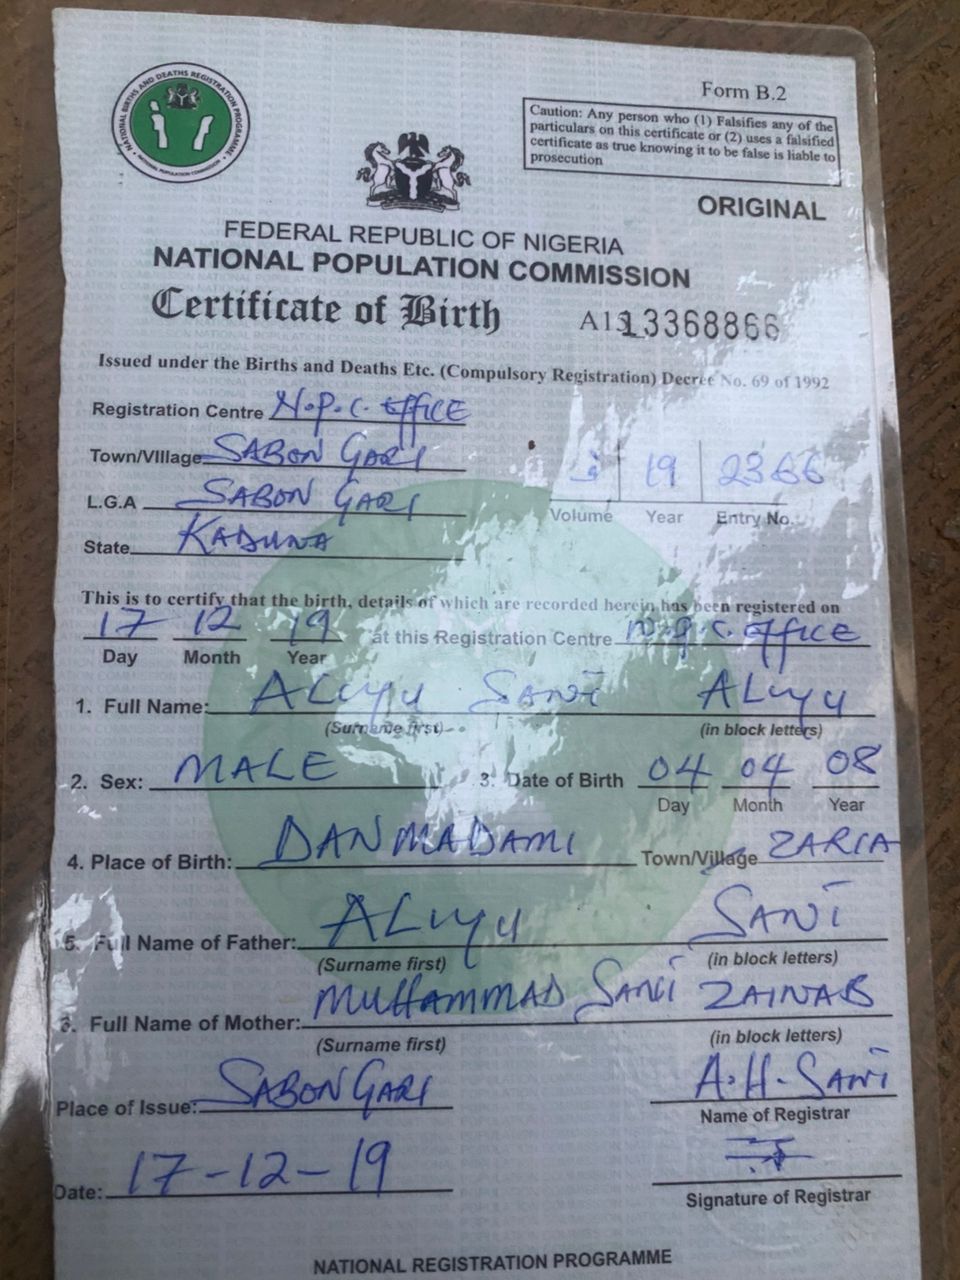 Form B.2
NATIONAL BIRTHS AND DEATHS REGISTRATION PROGRAMME
NATIONAL POPULATION COMMISSION
Caution: Any person who (1) Falsifies any of the
particulars on this certificate or (2) uses a falsified
certificate as true knowing it to be false is liable to
prosecution
ORIGINAL
FEDERAL REPUBLIC OF NIGERIA
NATIONAL POPULATION COMMISSION
Certificate of Birth
13368866
Issued under the Births and Deaths Etc. (Compulsory Registration) Decree No. 69 of 1992
Registration Centre N.P.C. OFFICE
Town/VIllage SABON GARI
L.G.A SABON GARI
State KADUNA
19 2366
Volume Year Entry No.
This is to certify that the birth, details of which are recorded herein has been registered on
17 12 19 at this Registration Centre N.P.C. OFFICE
Day Month Year
1. Full Name: ALIYU SANI ALIYU
(Surname first) (in block letters)
2. Sex: MALE 3. Date of Birth 04 04 08
Day Month Year
4. Place of Birth: DANMADAMI Town/Village ZARIA
5. Full Name of Father: ALIYU SANI
(Surname first) (in block letters)
6. Full Name of Mother: MUHAMMAD SANI ZAINAB
(Surname first) (in block letters)
Place of Issue: SABON GARI A.H. SANI
Name of Registrar
Date: 17-12-19
Signature of Registrar
NATIONAL REGISTRATION PROGRAMME